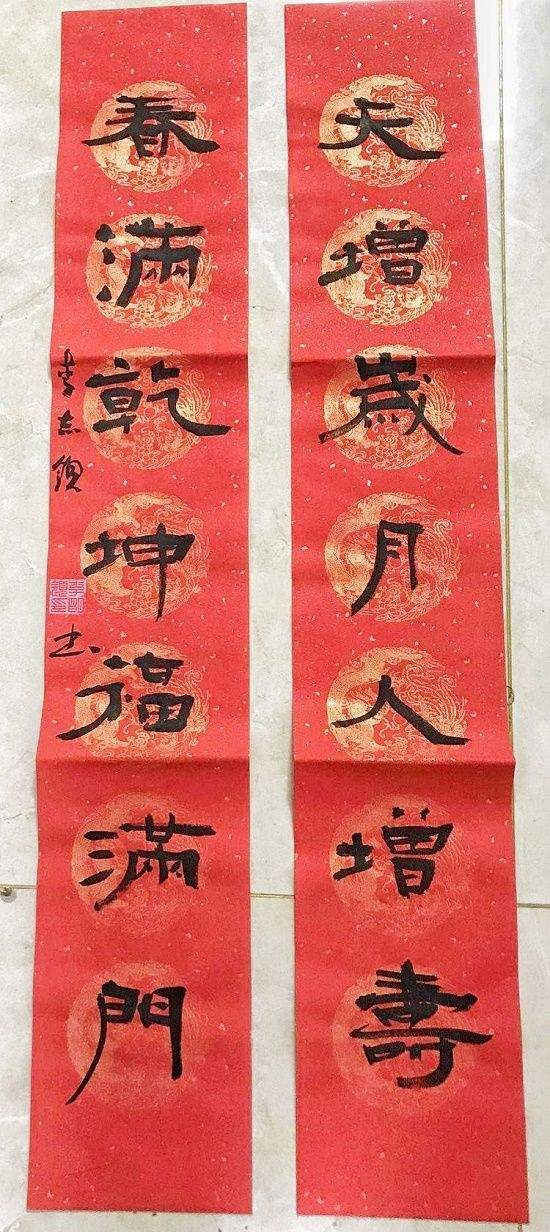 天增歲月人增壽
春滿乾坤福滿門
李志
书